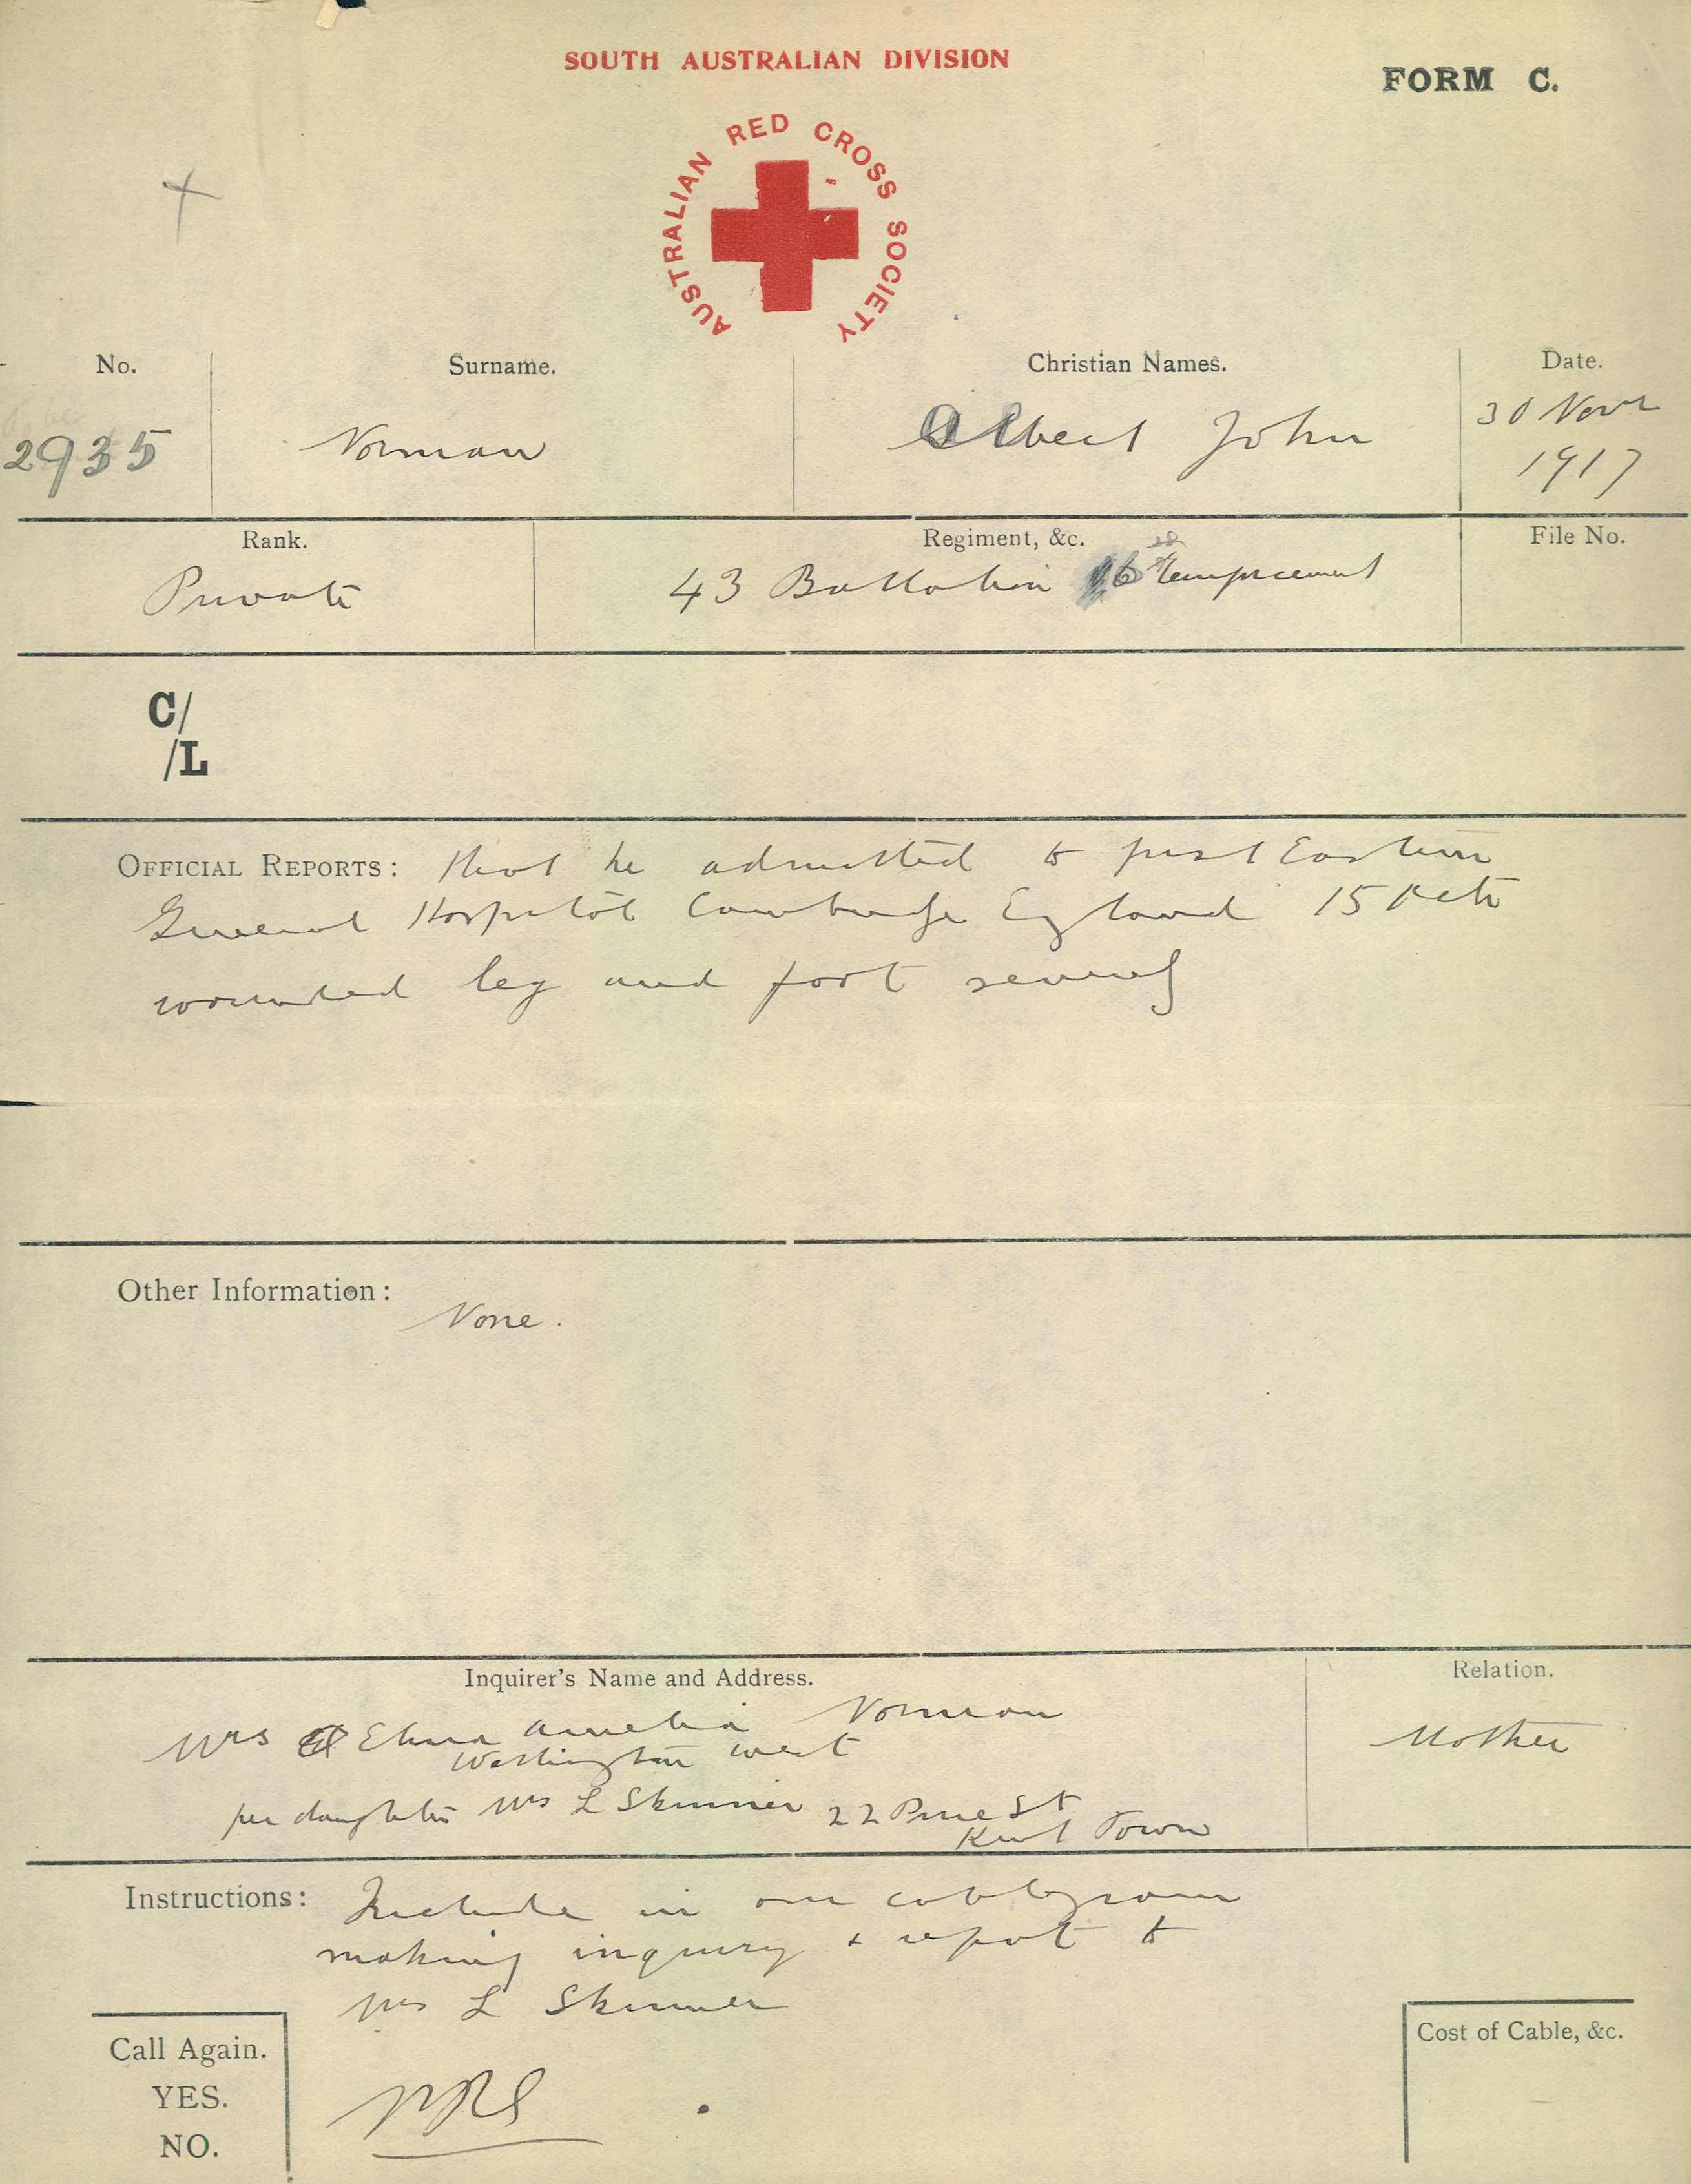 SOUTH AUSTRALIAN DIVISION
FORM C.
AUSTRALIAN RED CROSS SOCIETY
No.
Surname.
Christian Names.
Date.
2935
Norman
Albert John
30 Novr
1917
Rank.
Regiment, &c.
File No.
Private
43 Battalion 6 reinforcement
C/
/L
OFFICIAL REPORTS: that he admitted to first Eastern
General Hospital Cambridge England 15 Octr
wounded leg and foot severely
Other Information:
None.
Inquirer's Name and Address.
Relation.
Mrs Amelia Norman
Mother
Wellington West
per daughter Mrs L Skinner 22 Pine St
Kent Town
Instructions: Include in our cablegram
making inquiry & report to
Mrs L Skinner
Call Again.
YES.
NO.
Cost of Cable, &c.